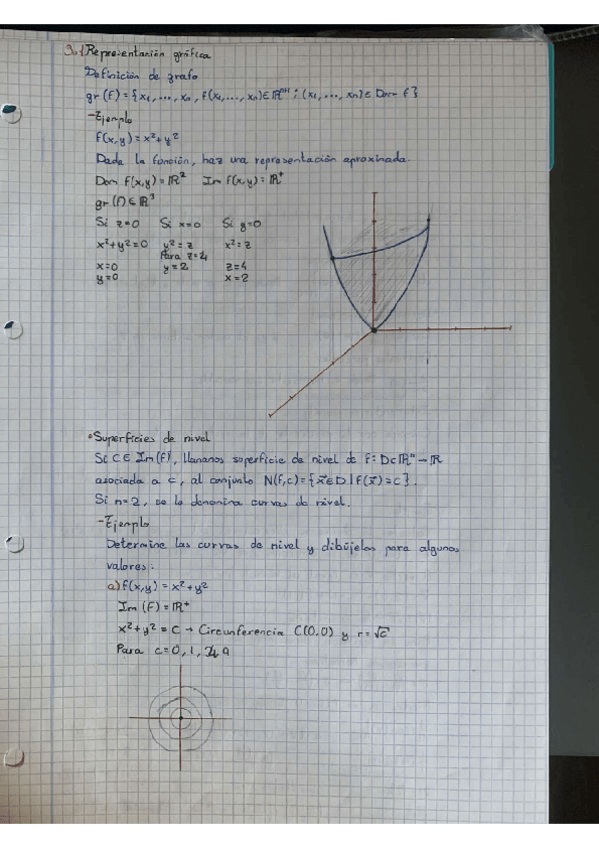 3.1 Representación gráfica
Definición de grafo
gr (f) = { x₁, ..., xₙ, f(x₁, ..., xₙ) ∈ ℝⁿ⁺¹ ; (x₁, ..., xₙ) ∈ Dom f }
- Ejemplo
f(x,y) = x² + y²
Dada la función, haz una representación aproximada.
Dom f(x,y) = ℝ² Im f(x,y) = ℝ⁺
gr (f) ∈ ℝ³
Si z=0 Si x=0 Si y=0
x²+y²=0 y²=z x²=z
Para z=4
x=0 y=2 z=4
y=0 x=2
• Superficies de nivel
Si C ∈ Im(f), llamamos superficie de nivel de f: D⊂ℝⁿ → ℝ
asociada a c, al conjunto N(f,c) = { x⃗ ∈ D | f(x⃗) = c }.
Si n=2, se le denomina curvas de nivel.
- Ejemplo
Determine las curvas de nivel y dibújelas para algunos
valores:
a) f(x,y) = x² + y²
Im (f) = ℝ⁺
x² + y² = C → Circunferencia C(0,0) y r = √c
Para c = 0, 1, 4, 9